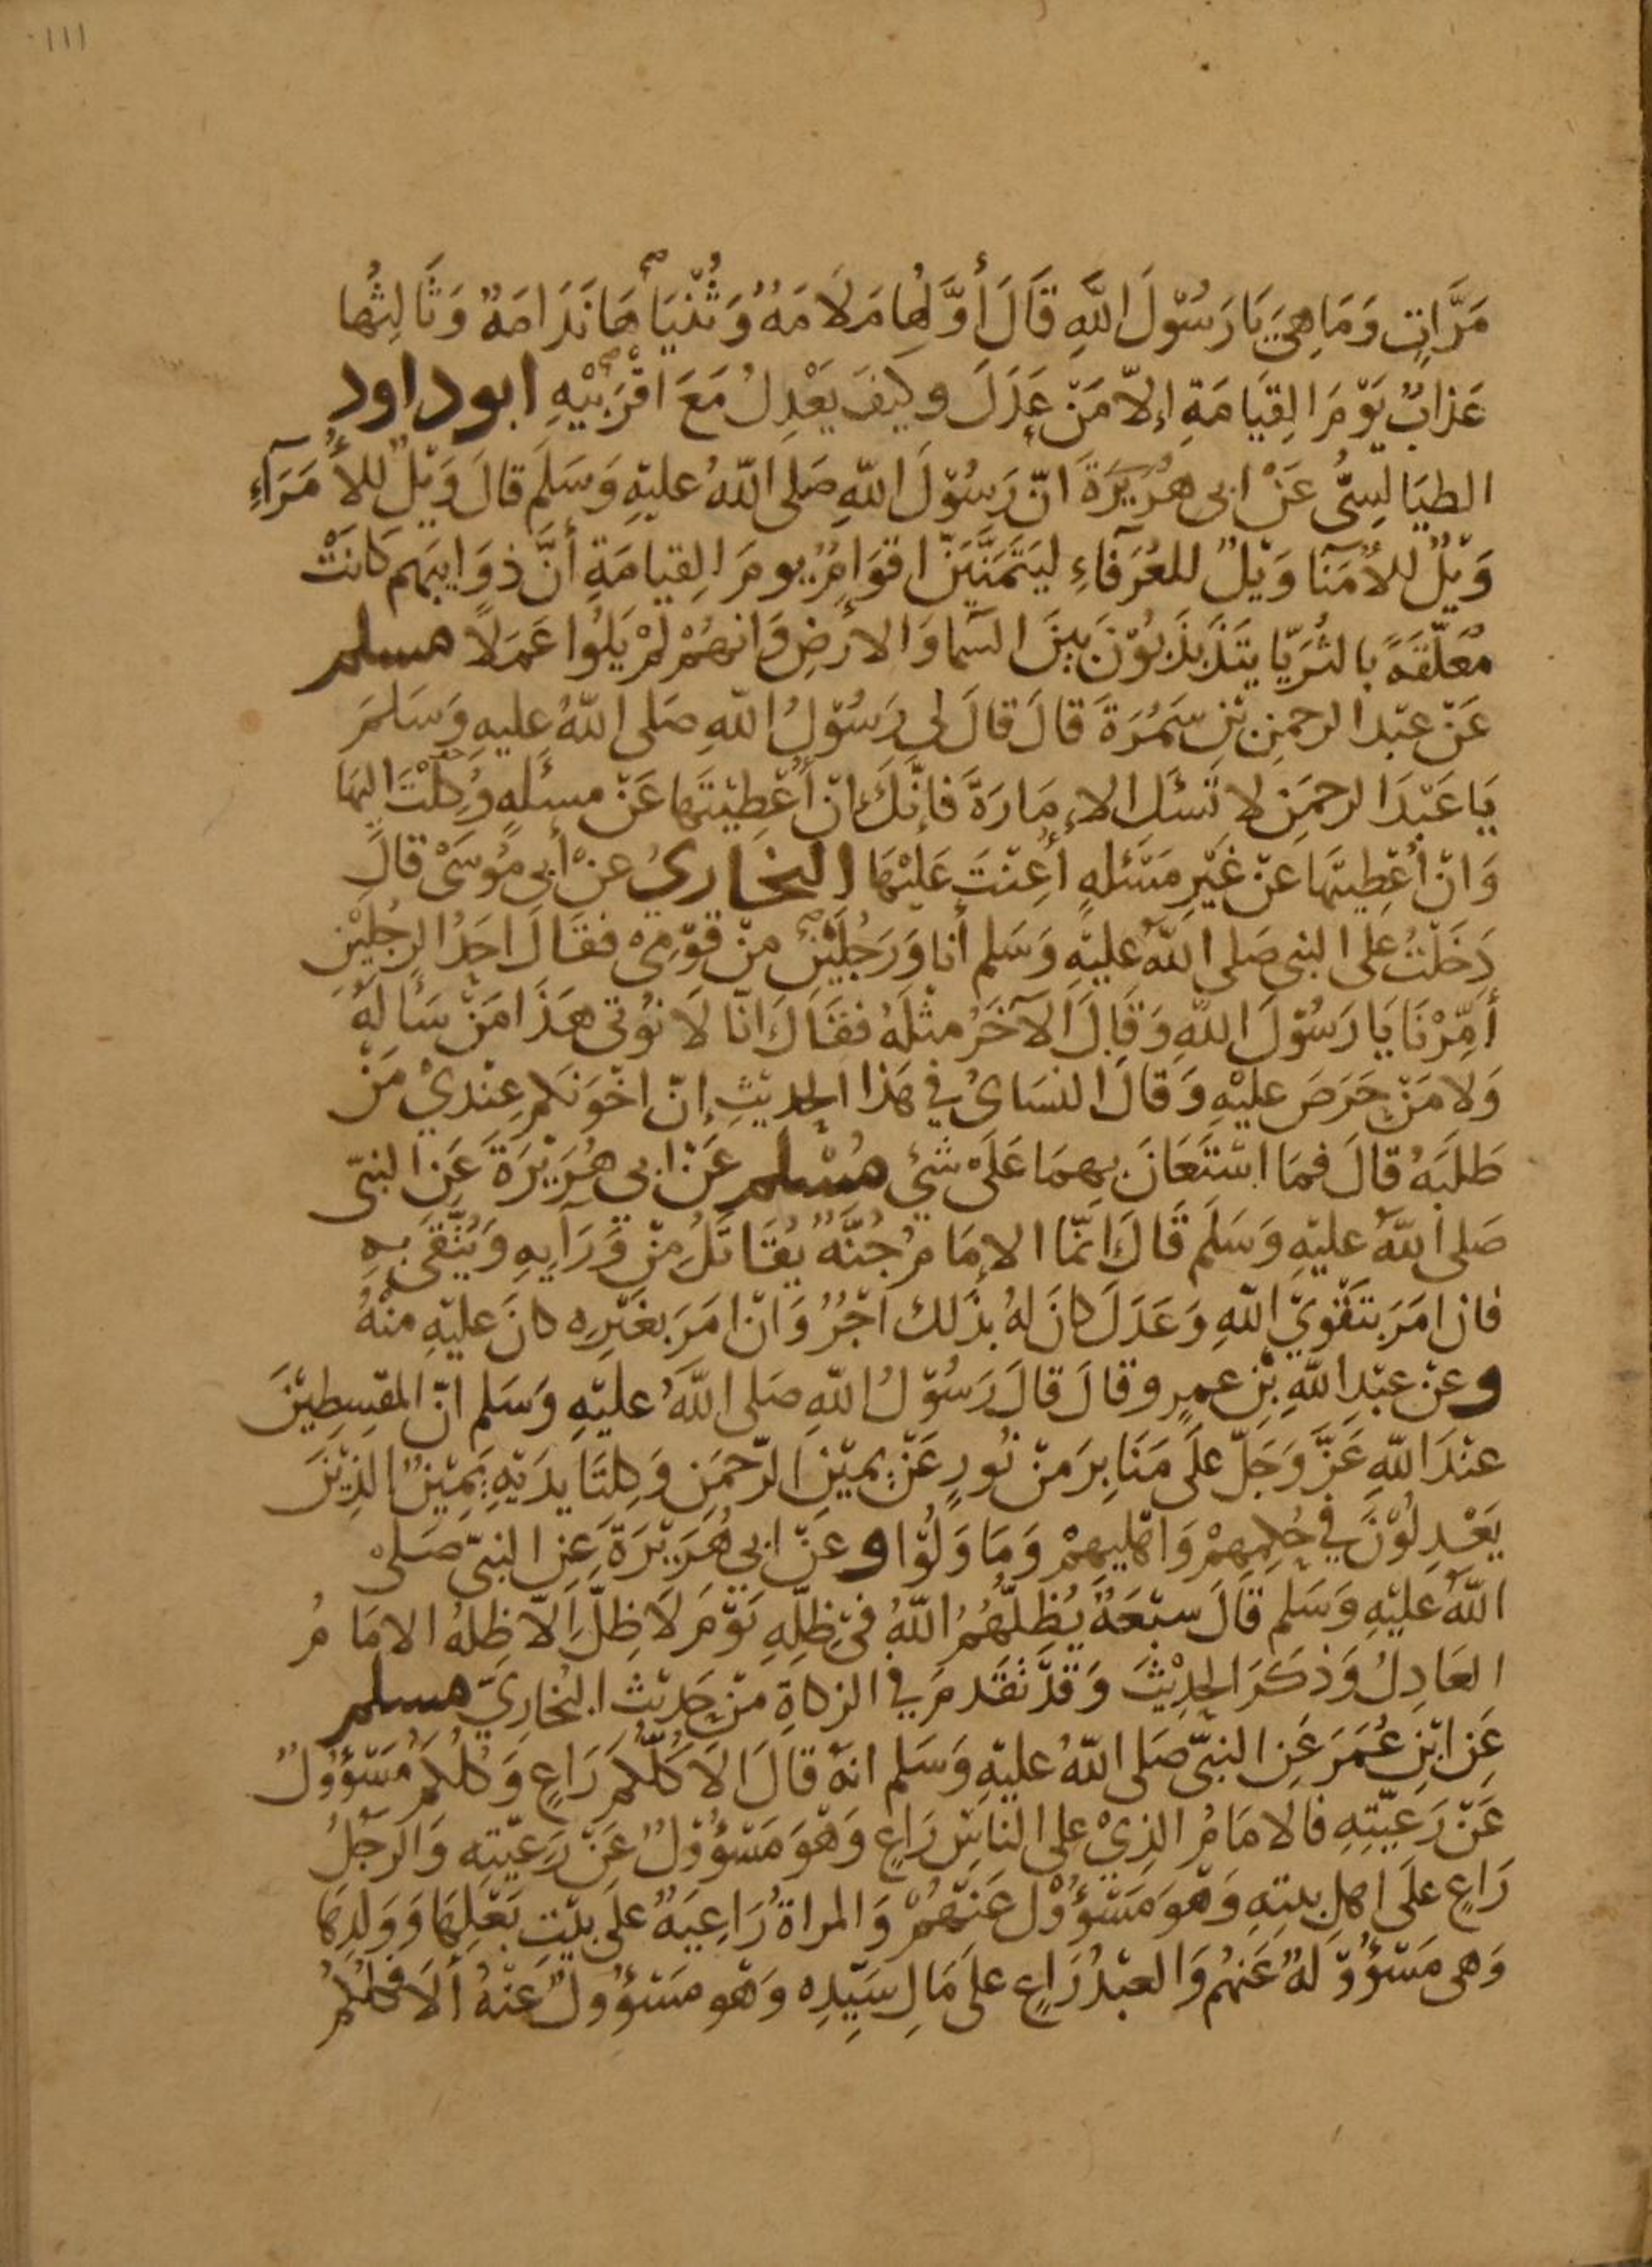 ١١١
مَرَّاتٍ وَمَا هِيَ يَا رَسُوْلَ اللَّهِ قَالَ أَوَّلُهَا مَلَامَةٌ وَثُنْيَاهَا نَدَامَةٌ وَثَالِثُها
عَذابٌ يَوْمَ القِيَامَةِ إلّا مَنْ عَدَلَ وكيفَ يَعْدِلُ مَعَ اقْرَبيْهِ ابو داود
الطيَالِسِىُّ عَنْ ابى هُرَيْرَةَ انّ رَسُوْلَ اللّهِ صَلى اللّهُ عليْهِ وَسَلَم قالَ وَيْلٌ للأُمَرَآءِ
وَيْلٌ للأُمَنَا وَيْلٌ للعُرَفآءِ ليَتَمَنَّيَنّ اقوَامٌ يومَ القِيامَةِ أنَّ ذوَايبَهم كَانَتْ
مُعَلّقَةً بالثُرَيّا يتَذَبذَبُوْنَ بَينَ السّما وَالارَضِ وَانهمُ لَمْ يَلُوا عَمَلًا مسلم
عَنْ عبْد الرحمنِ بْنِ سَمُرَةَ قالَ قالَ لى رَسُوْلُ اللّهِ صَلى اللّهُ عليهِ وَسَلمَ
يَا عَبْدَ الرحمَنِ لا تَسئَل الإمَارَةَ فَإنّكَ انْ أُعْطِيْتَها عَنْ مسئَلهٍ وُكِلْتَ اليهَا
وَانْ أُعْطِيتَهَا عَنْ غَيْرِ مَسْئَلهٍ أُعِنْتَ عَليْهَا البخاريُ عنْ أبى مُوسَىْ قالَ
دَخَلْتُ عَلى النبى صَلى اللّهُ عليْهِ وَسَلم أنا وَرَجُليْنِ منْ قوْمِىْ فقالَ احَدُ الرجُليْنِ
أمِّرْنَا يَا رَسُوْلَ اللّهِ وَقَالَ الآخَرُ مثْلَهُ فقالَ انّا لَا نُوتى هَذَا مَنْ سَألهُ
وَلا مَنْ حَرَصَ عليْهِ وَقالَ النسَاىُ في هَذا الحديْثِ إنّ اخْوَنَكم عِنْديْ مَنْ
طَلَبَهُ قالَ فمَا اسْتَعَانَ بهمَا عَلَىْ شَيْءٍ مُسْلم عَنْ ابى هُرَيْرَةَ عَنِ النبىّ
صَلى اللّهُ عليْهِ وَسَلَم قَالَ انّمَا الإمَامُ جُنَّةٌ يُقَاتَلُ مِنْ وَرَآيهِ وَيُتّقَى بهِ
فان امَرَ بتَقْوَيْ اللّهِ وَعَدَلَ كانَ لهُ بذلك اجْرٌ وَانْ امَرَ بغَيْرِه كانَ عليْهِ منْهُ
وعنْ عبْدِ اللّهِ بْنِ عمرٍو قالَ قالَ رَسُوْلُ اللّهِ صَلى اللّهُ عليْهِ وَسَلم انّ المقسِطِيْنَ
عنْدَ اللّهِ عَزَّ وَجَلّ عَلَى مَنَابِرَ منْ نُورٍ عَنْ يميْنِ الرّحمَنِ وَكِلتَا يدَيْهِ يَمِيْنٌ الذِيْنَ
يَعْدِلُوْنَ في حُكمِهمْ وَاهْليهِمْ وَمَا وَلُوْا وعَنْ ابى هُرَيْرَةَ عَنِ النبىّ صَلىْ
اللّهُ عليْهِ وَسَلم قَالَ سبْعَةٌ يُظِلُّهُمُ اللّهُ فىْ ظِلِّهِ يَوْمَ لَا ظِلَّ الّا ظِلهُ الامَامُ
العَادِلُ وَذكَرَ الحدِيْثَ وَقدْ تقَدمَ في الزكاةِ منْ حَديْثِ البُخارِيّ مسلم
عَنِ ابْنِ عُمَرَ عَنِ النبىّ صَلى اللّهُ عليْهِ وَسَلم انهُ قالَ الَا كُلّكُم رَاعٍ وَكُلكُم مَسْؤوْلٌ
عَنْ رَعيّتِهِ فالامَامُ الذِيْ على الناسِ رَاعٍ وَهْوَ مَسْؤوْلٌ عَنْ رَعيّتِه وَالرجُلُ
رَاعٍ عَلَى اهل بيتِهِ وَهْوَ مَسْؤوْلٌ عَنْهُمْ وَالمراةُ رَاعِيَةٌ عَلَى بيْتِ بَعْلِهَا وَوَلدِهَا
وَهى مَسْؤوْلَةٌ عَنهُم وَالعبْدُ رَاعٍ علَى مَالِ سَيّدِه وَهْو مَسْؤولٌ عَنْهُ ألَا فكُلكُمُ